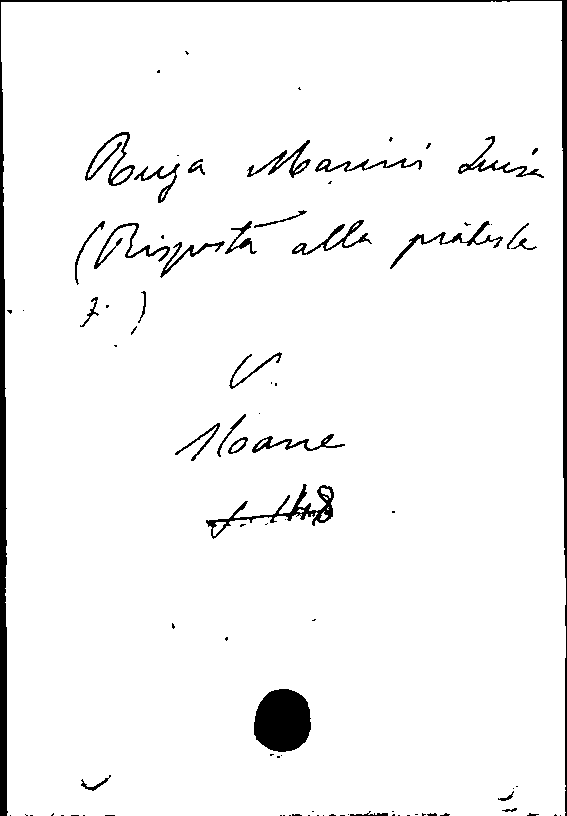 Ruga Marini Luisa
(Risposta alla proteste
z.)
V.
Sloane